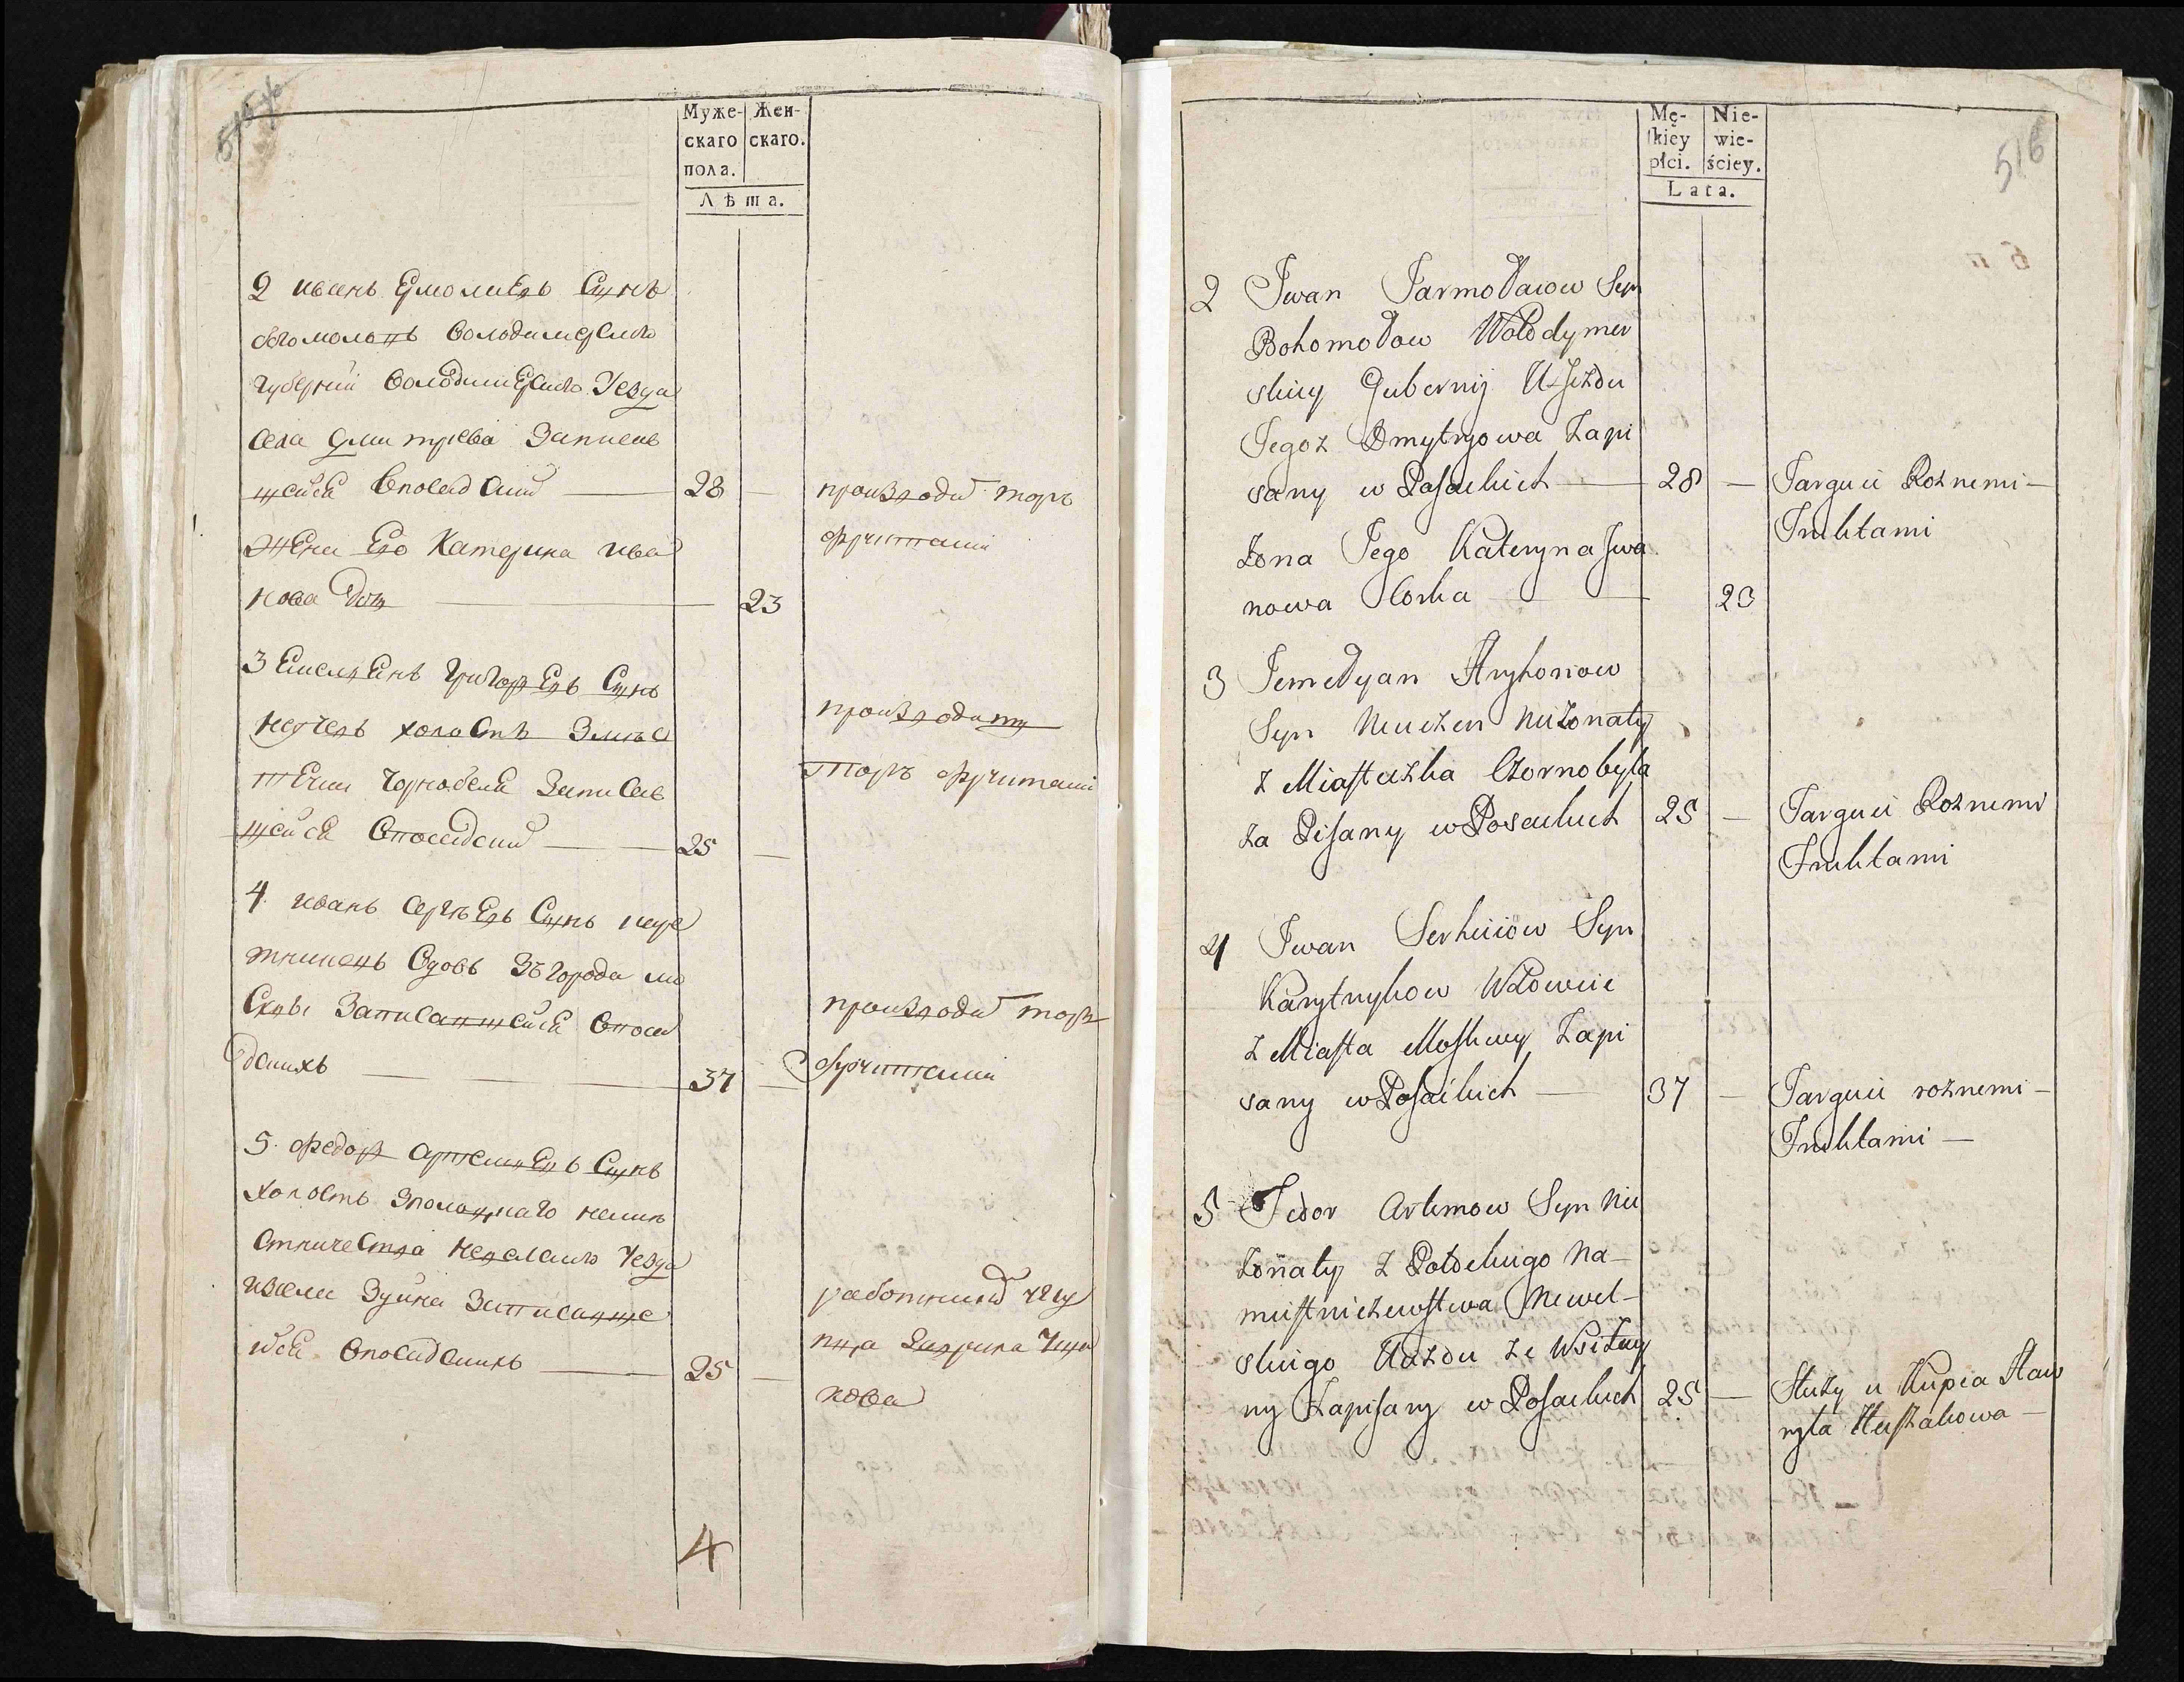 Муже-
скаго
пола.
Жен-
скаго.
Лѣта.
2 иванъ Ермолаевъ Сынъ
богомоловъ володимерскій
губерніи володимерскаго Уезда
села Дмитриева Записав
шейся впосадские 28 —
Жена Его Катерина ива
нова дочь 23
производит торгъ
фруктами
3 Емельенъ Григорьевъ Сынъ
холостъ Змес
течка Чорнобеля Записав
шейся впосадские 25 —
производить
торгъ фруктами
4 иванъ сергѣевъ Сынъ
вдовъ Згорода мо
сквы Записавшейся впоса
дскихъ 37 —
производит торгъ
фруктами
5 федоръ артемьевъ Сынъ
холостъ Зполоцкаго намѣ
стничества невелскаго Уезда
Записавше
йся впосадскихъ 25 —
работником укуп
ца Гаврила
кова
4
516
Mę-
skiey
płci.
Nie-
wie-
ściey.
Lata.
2 Iwan Jarmołaiow Syn
Bohomołow Wołodymer
skiey Gubernij Ujezdu
Tegoz Dmytryowa Zapi
sany w Posackich — 28 —
Targuie Roznemi —
Fruktami
Zona Jego Kateryna Iwa
nowa Corka — 23
3 Jemelyan Hryhoriow
Syn nieżonaty
z Miasteczka Czornobyla
za Pisany w Posackich 25 —
Targuie Roznemi
Fruktami
4 Iwan Serhieiow Syn
Karytnykow Wdowiec
z Miasta Moskwy Zapi
sany w Posackich — 37 —
Targuie roznemi —
Fruktami —
5 Fedor Artemow Syn nie
żonaty z Połockiego Na-
miestniczewstwa Newel-
skiego Uiezdu ze Wsi
Zapisany w Posackich 25 —
Służy u Kupca Haw
ryła